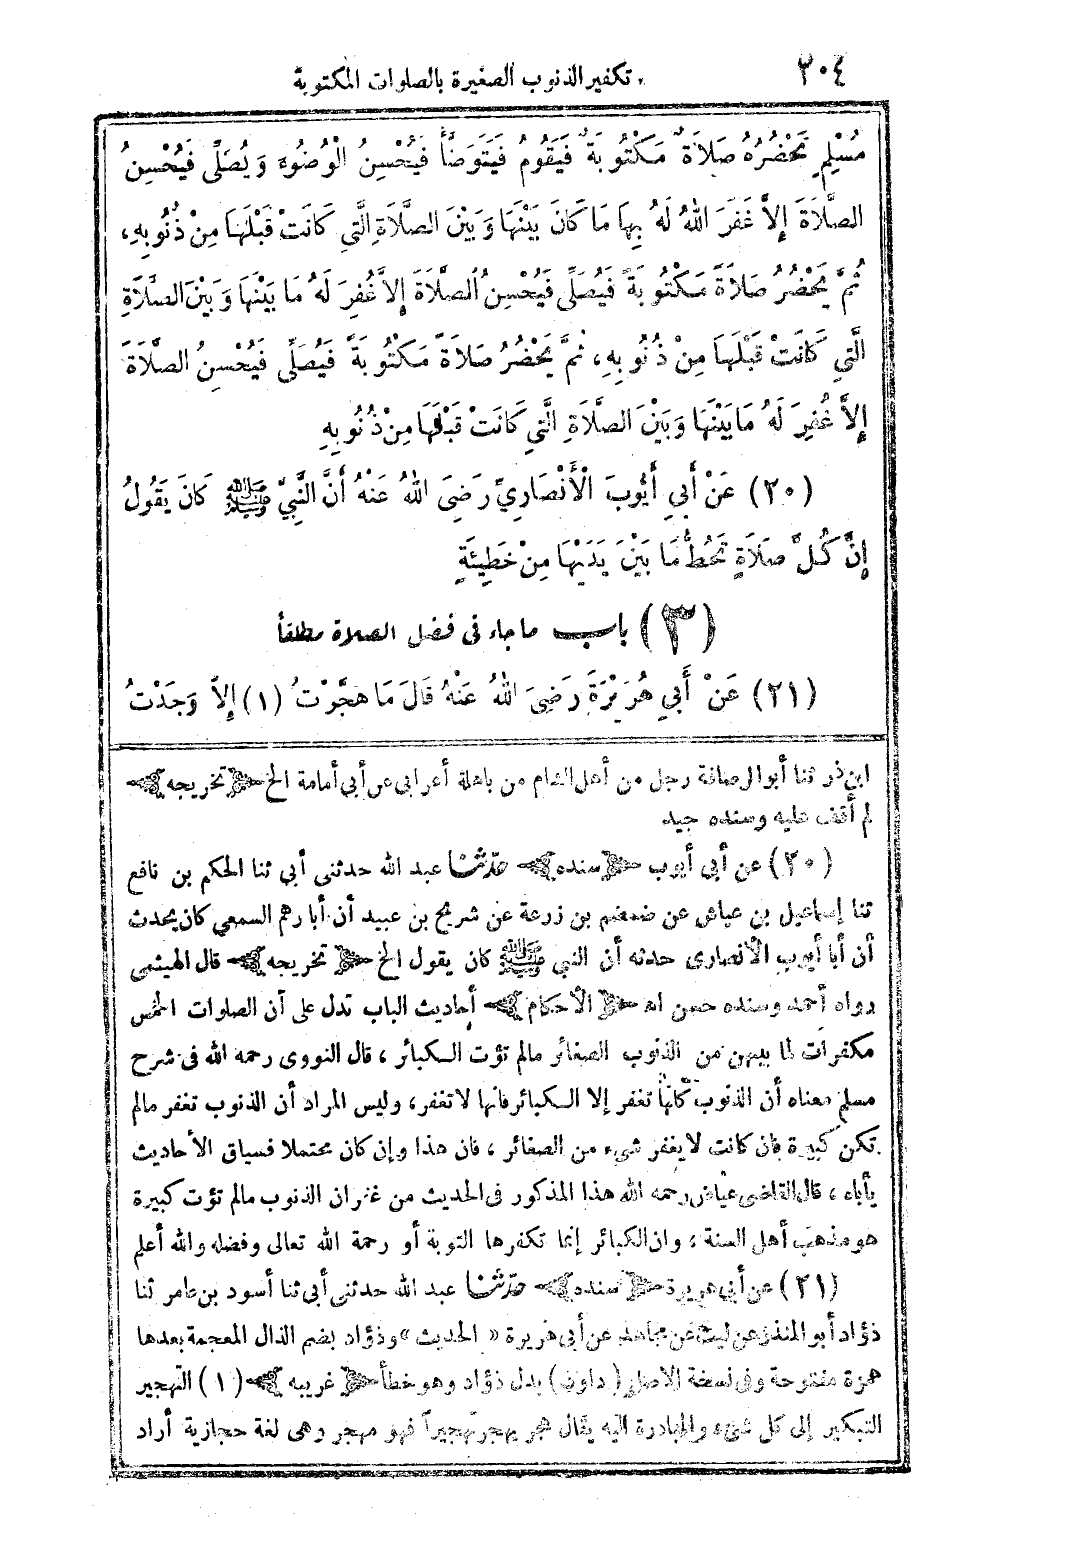 ٣٠٤
تكفير الذنوب الصغيرة بالصلوات المكتوبة
مُسْلِمٍ تَحْضُرُهُ صَلَاةٌ مَكْتُوبَةٌ فَيَقُومُ فَيَتَوَضَّأُ فَيُحْسِنُ الْوُضُوءَ وَيُصَلِّى فَيُحْسِنُ
الصَّلَاةَ إِلاَّ غَفَرَ اللهُ لَهُ بِهَا مَا كَانَ بَيْنَهَا وَبَيْنَ الصَّلَاةِ الَّتِي كَانَتْ قَبْلَهَا مِنْ ذُنُوبِهِ،
ثُمَّ يَحْضُرُ صَلَاةً مَكْتُوبَةً فَيُصَلِّى فَيُحْسِنُ الصَّلَاةَ إِلاَّ غُفِرَ لَهُ مَا بَيْنَهَا وَبَيْنَ الصَّلَاةِ
الَّتِي كَانَتْ قَبْلَهَا مِنْ ذُنُوبِهِ، ثُمَّ يَحْضُرُ صَلَاةً مَكْتُوبَةً فَيُصَلِّى فَيُحْسِنُ الصَّلَاةَ
إِلاَّ غُفِرَ لَهُ مَا بَيْنَهَا وَبَيْنَ الصَّلَاةِ الَّتِي كَانَتْ قَبْلَهَا مِنْ ذُنُوبِهِ
(٢٠) عَنْ أَبِي أَيُّوبَ الْأَنْصَارِيِّ رَضِيَ اللهُ عَنْهُ أَنَّ النَّبِيَّ ﷺ كَانَ يَقُولُ
إِنَّ كُلَّ صَلَاةٍ تَحُطُّ مَا بَيْنَ يَدَيْهَا مِنْ خَطِيئَةٍ
(٣) باب ما جاء فى فضل الصلاة مطلقاً
(٢١) عَنْ أَبِي هُرَيْرَةَ رَضِيَ اللهُ عَنْهُ قَالَ مَا هَجَّرْتُ (١) إِلاَّ وَجَدْتُ
ابن ذر ثنا أبو الرصافة رجل من أهل الشام من باهلة أعرابى عن أبى أمامة الخ ﴿تخريجه﴾
لم أقف عليه وسنده جيد
(٢٠) عن أبى أيوب ﴿سنده﴾ حدّثنا عبد الله حدثنى أبى ثنا الحكم بن نافع
ثنا إسماعيل بن عياش عن ضمضم بن زرعة عن شريح بن عبيد أن أبا رهم السمعى كان يحدث
أن أبا أيوب الأنصارى حدثه أن النبى ﷺ كان يقول الخ ﴿تخريجه﴾ قال الهيثمى
رواه أحمد وسنده حسن اه ﴿الأحكام﴾ أحاديث الباب تدل على أن الصلوات الخمس
مكفرات لما بينهن من الذنوب الصغائر مالم تؤت الكبائر، قال النووى رحمه الله فى شرح
مسلم معناه أن الذنوب كلها تغفر إلا الكبائر فانها لا تغفر، وليس المراد أن الذنوب تغفر مالم
تكن كبيرة فان كانت لا يغفر شىء من الصغائر، فان هذا وإن كان محتملا فسياق الأحاديث
يأباه، قال القاضى عياض رحمه الله هذا المذكور فى الحديث من غفران الذنوب مالم تؤت كبيرة
هو مذهب أهل السنة، وان الكبائر إنما تكفرها التوبة أو رحمة الله تعالى وفضله والله أعلم
(٢١) عن أبى هريرة ﴿سنده﴾ حدّثنا عبد الله حدثنى أبى ثنا أسود بن عامر ثنا
ذؤاد أبو المنذر عن ليث عن مجاهد عن أبى هريرة « الحديث » وذؤاد بضم الذال المعجمة بعدها
همزة مفتوحة وفى نسخة الاصل (داود) بدل ذؤاد وهو خطأ ﴿غريبه﴾ (١) التهجير
التبكير إلى كل شىء والمبادرة اليه يقال هجر يهجر تهجيراً فهو مهجر وهى لغة حجازية أراد